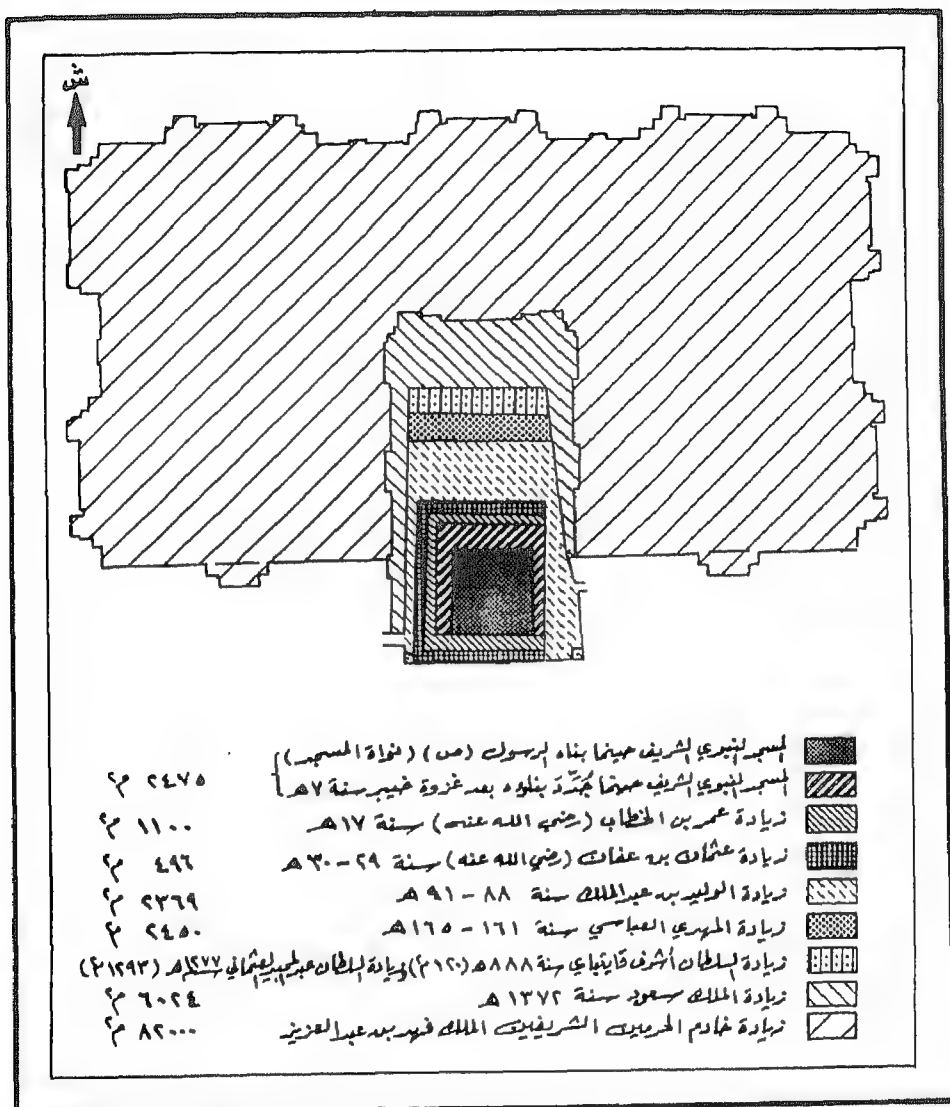 ش
المسجد النبوي الشريف حينما بناه الرسول (ص) (نواة المسجد)
المسجد النبوي الشريف حينما جُدِّدَ بناؤه بعد غزوة خيبر سنة ٧هـ ٢٤٧٥ م٢
زيادة عمر بن الخطاب (رضي الله عنه) سنة ١٧هـ ١١٠٠ م٢
زيادة عثمان بن عفان (رضي الله عنه) سنة ٢٩-٣٠هـ ٤٩٦ م٢
زيادة الوليد بن عبدالملك سنة ٨٨ - ٩١هـ ٢٣٦٩ م٢
زيادة المهدي العباسي سنة ١٦١ - ١٦٥هـ ٢٤٥٠ م٢
زيادة السلطان أشرف قايتباي سنة ٨٨٨هـ (١٢٠م٢) وزيادة السلطان عبدالمجيد العثماني سنة ١٢٧٧هـ (١٢٩٣م٢)
زيادة الملك سعود سنة ١٣٧٢هـ ٦٠٢٤ م٢
زيادة خادم الحرمين الشريفين الملك فهد بن عبدالعزيز ٨٢٠٠٠ م٢